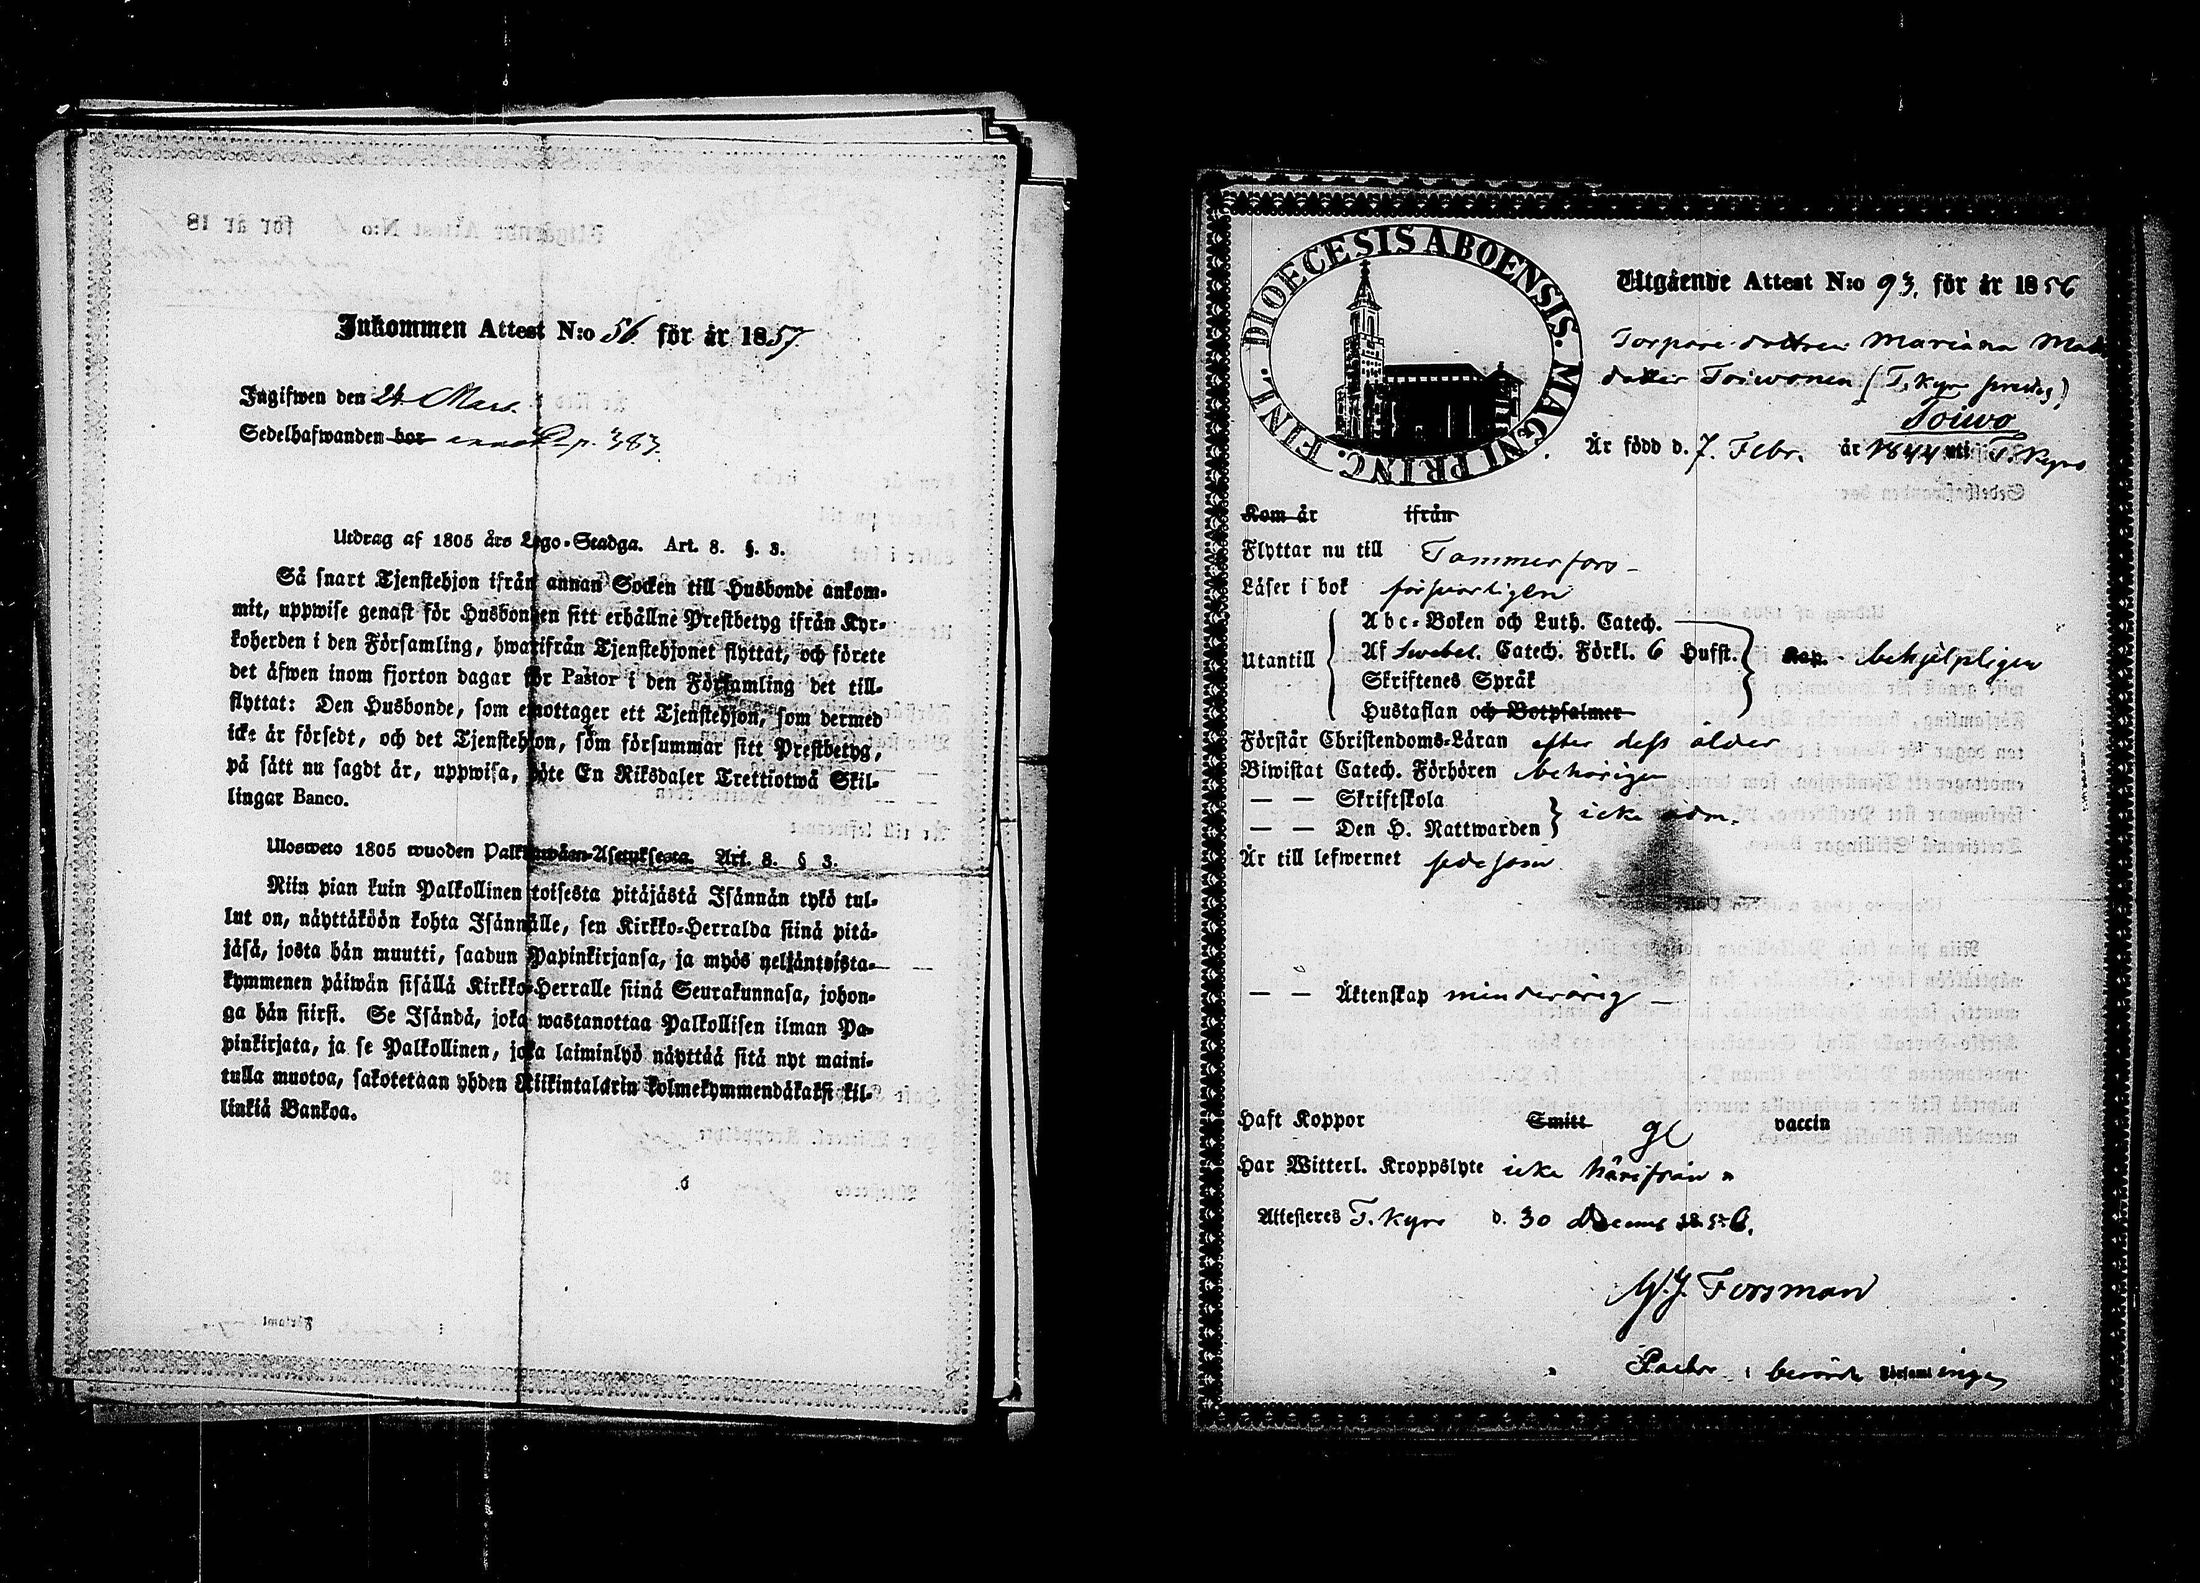 Inkommen Attest N:o 56 för år 1857
Ingifwen den 24 Mars.
Sedelhafwanden bor p. 383.
Utdrag af 1805 års Lego-Stadga. Art. 8. §. 3.
Så snart Tjenstehjon ifrån annan Socken till Husbonde ankom-
mit, uppwise genast för Husbonden sitt erhållne Prestbetyg ifrån Kyr-
koherden i den Församling, hwarifrån Tjenstehjonet flyttat, och förete
det äfwen inom fjorton dagar för Pastor i den Församling det till-
flyttat: Den Husbonde, som emottager ett Tjenstehjon, som dermed
icke är försedt, och det Tjenstehjon, som försummar sitt Prestbetyg,
på sätt nu sagdt är, uppwisa, böte En Riksdaler Trettiotwå Skil-
lingar Banco.
Ulosweto 1805 wuoden Palkkawäen-Asetuksesta. Art. 8. § 3.
Niin pian kuin Palkollinen toisesta pitäjästä Isännän tykö tul-
lut on, näyttäköön kohta Isännälle, sen Kirkko-Herralda siinä pitä-
jäsä, josta hän muutti, saadun Papinkirjansa, ja myös neljäntoista-
kymmenen päiwän sisällä Kirkko-Herralle siinä Seurakunnasa, johon-
ga hän siirsi. Se Isändä, joka wastanottaa Palkollisen ilman Pa-
pinkirjata, ja se Palkollinen, joka laiminlyö näyttää sitä nyt maini-
tulla muotoa, sakotetaan yhden Riikintalarin kolmekymmendäkaksi kil-
linkiä Bankoa.
DIOECESIS ABOENSIS. MAGNI PRINC. FINL.
Utgående Attest N:o 93. för år 1856
Torpare dottren Mariana Matts
dotter Toiwonen (T. Kyro
Toiwo
Är född d. 7. Febr. år 1844 uti T. Kyro
Kom år ifrån
Flyttar nu till Tammerfors
Läser i bok försvarligen
Abc-Boken och Luth. Catech.
Utantill Af Swebel. Catech. Förkl. 6 Hufst. Kap. behjelpligen
Skriftenes Språk
Hustaflan och Botpsalmer
Förstår Christendoms-Läran efter dess ålder
Biwistat Catech. Förhören behörigen
— — Skriftskola
— — Den H. Nattwarden icke adm.
Är till lefwernet sedesam
— — Äktenskap minderårig
Haft Koppor Smitt gl vaccin
Har Witterl. Kroppslyte icke härifrån
Attesteres T. Kyro d. 30 Decemb 1856.
Forsman
Pastor i berörde Församlingen